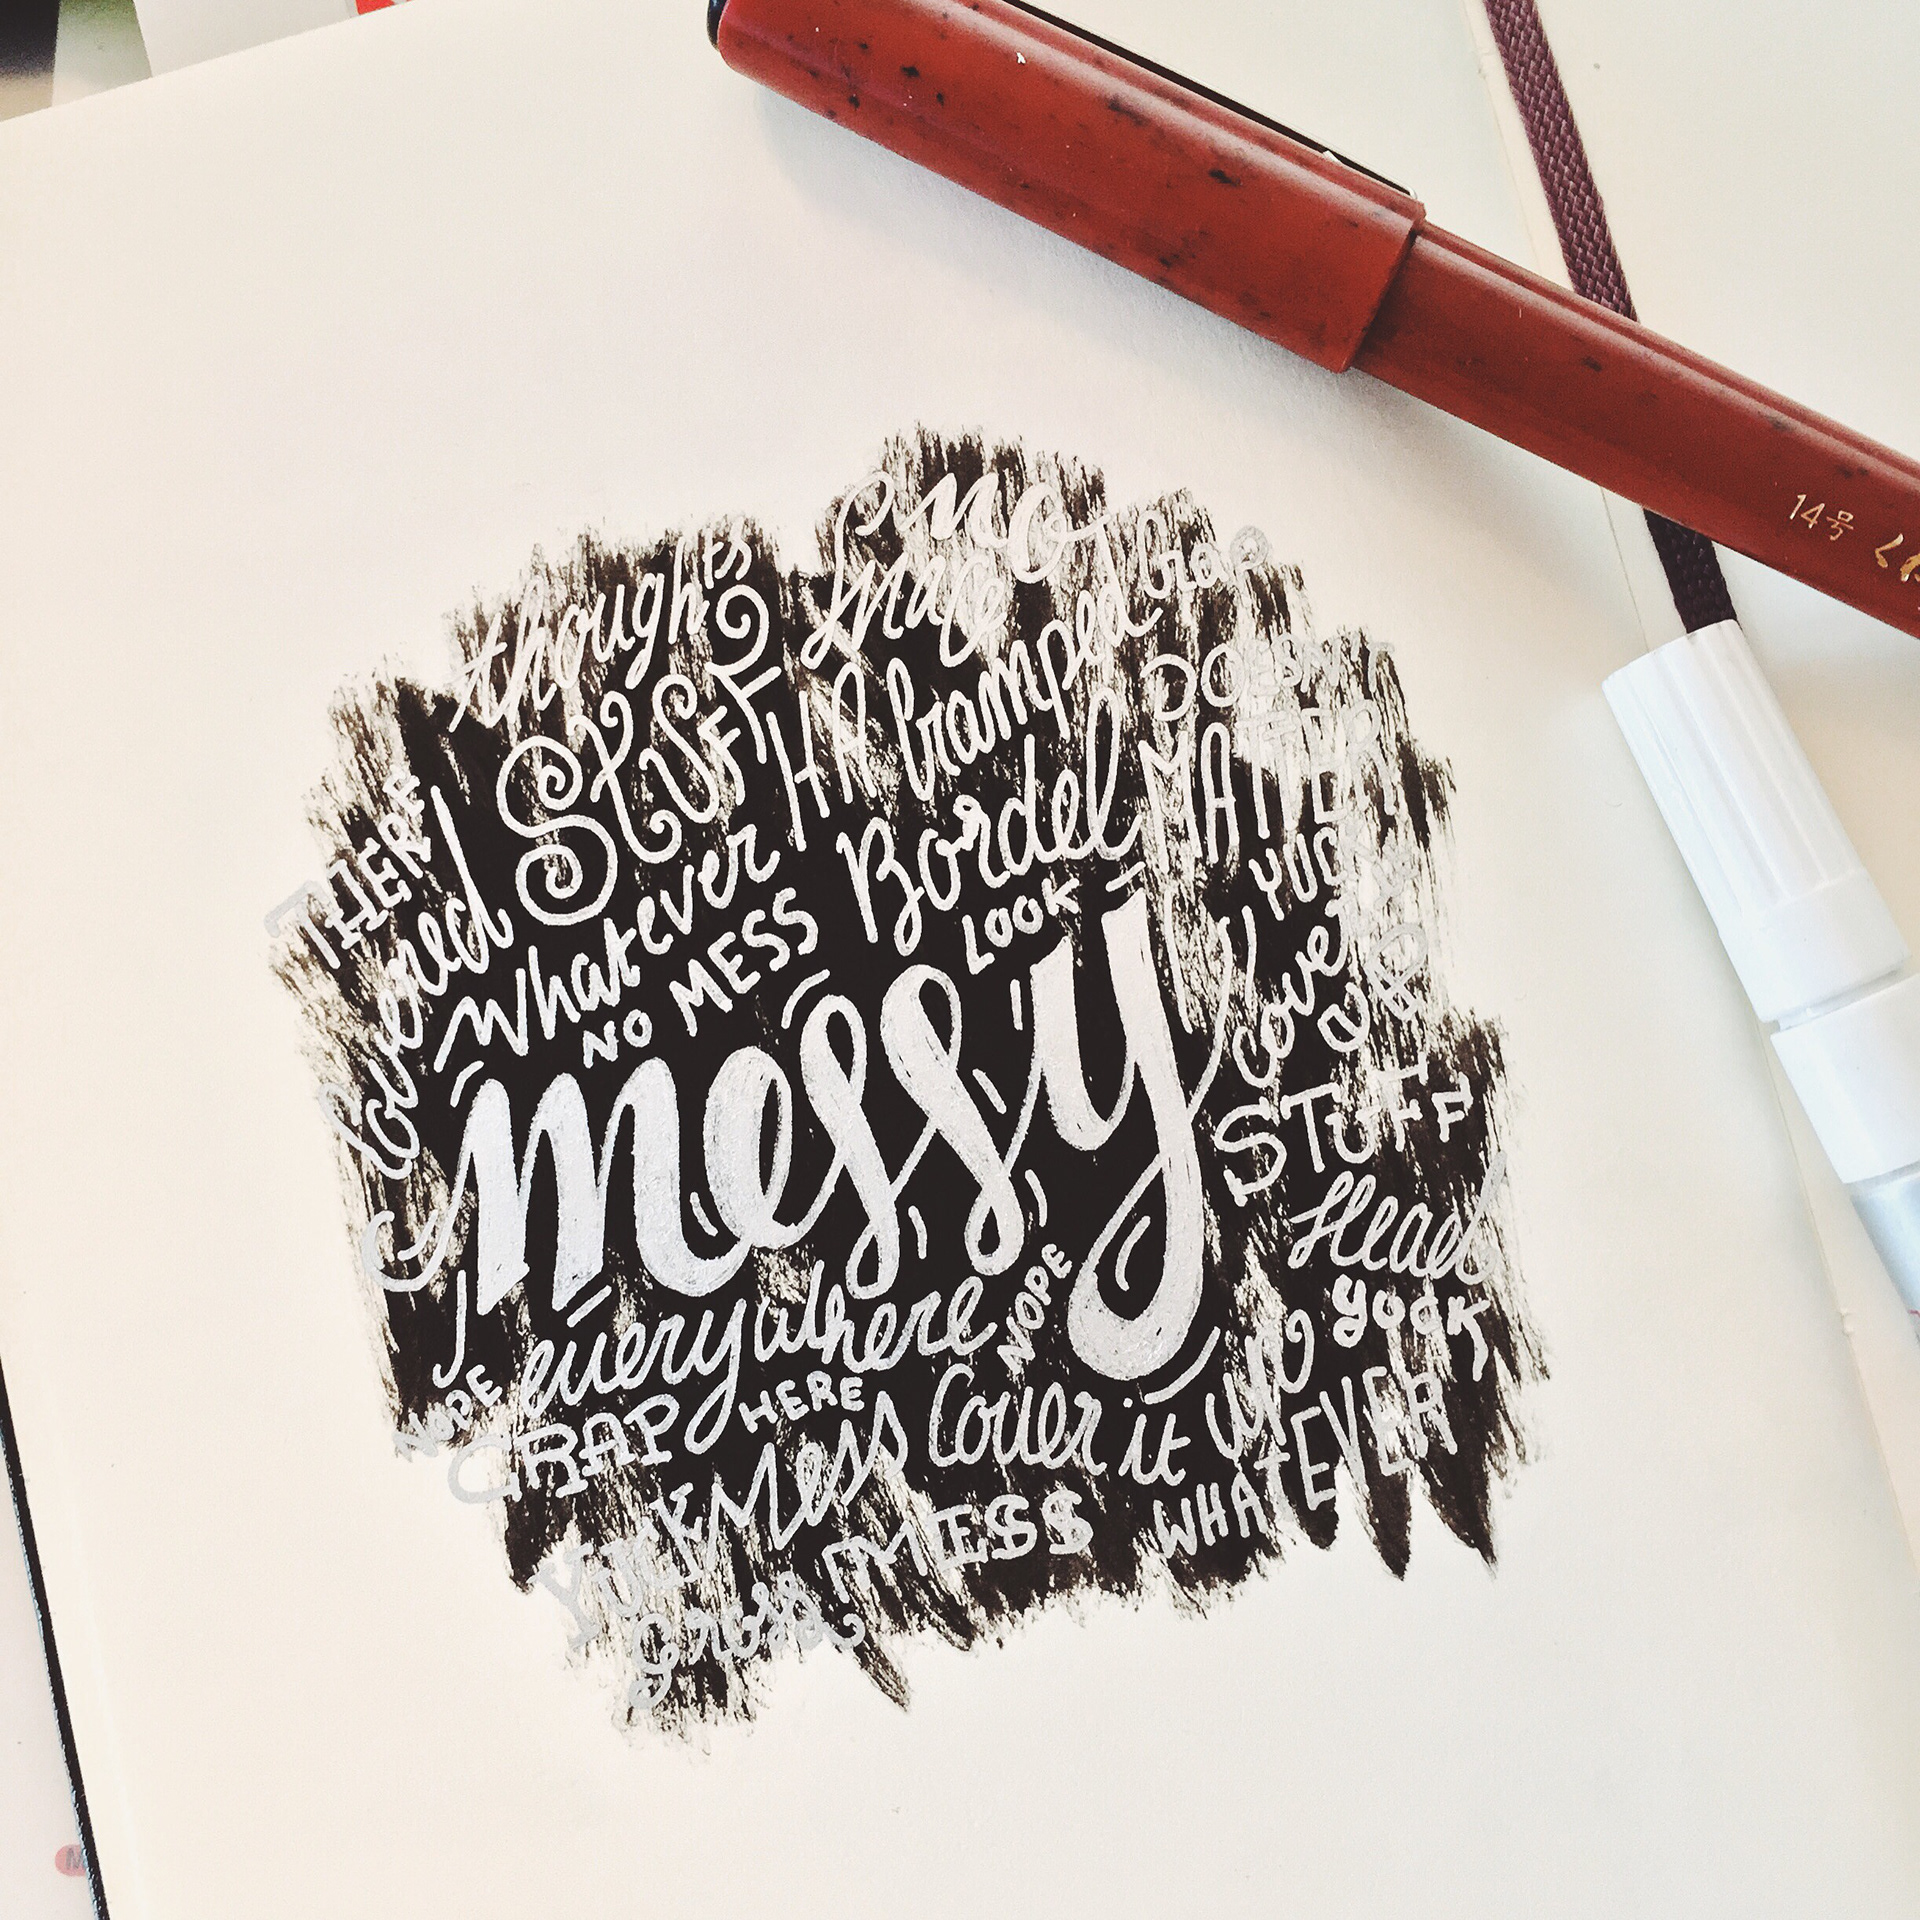 no
thoughts
Space
Crap
STUFF
HA
Cramped
DOESN'T
MATTER
THERE
Covered
Whatever
Bordel
YUCK
NO MESS
LOOK
Cover
UP
messy
STUFF
Head
everywhere
NOPE
YOUK
NOPE
CRAP
HERE
Mess
Cover it up
WHATEVER
YUCK
MESS
Gross
14号 く